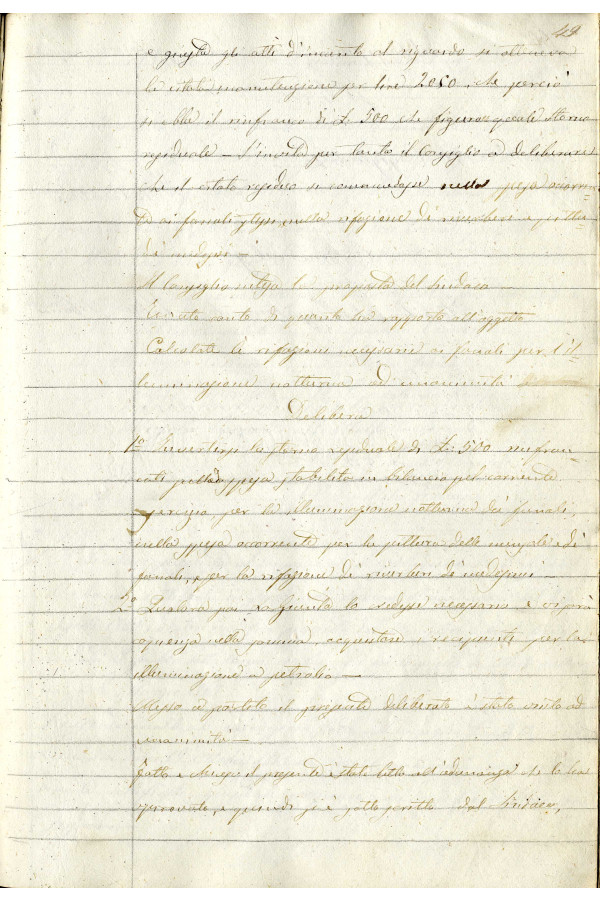 e giusta gli atti d'incanto al riguardo si otteneva
la citata manutenzione per lire 2050, che perciò
si ebbe il rinfranco di L. 500 che figurar quale storno
residuale – S'invita per tanto il Consiglio a deliberare
che il citato residuo si nella spesa occorren
ta ai fanali nella rifazione di riverberi e pittu
di medesimi –
Il Consiglio intesa la proposta del Sindaco –
Tenuto conto di quanto ha rapporto all'oggetto
Calcolate le rifazioni necessarie ai fanali per l'il
luminazione notturna ad unanimità
Delibera
1° Invertirsi la storno residuale di L. 500 rinfran
cati sulla spesa stabilita in bilancio pel corrente
esercizio per la illuminazione notturna dei fanali
nella spesa occorrente per la pittura delle mensole e di
fanali, e per la rifazione di riverberi di medesimi –
2° Qualora poi la Giunta lo credesse necessario e vi sia
nella somma, acquistare i recipienti per la
illuminazione a petrolio –
Messo a partito il presente deliberato è stato votato ad
unanimità –
Fatto e chiuso il presente è stato letto all'adunanza che lo ha
approvato, e quindi si è sottoscritto dal Sindaco,